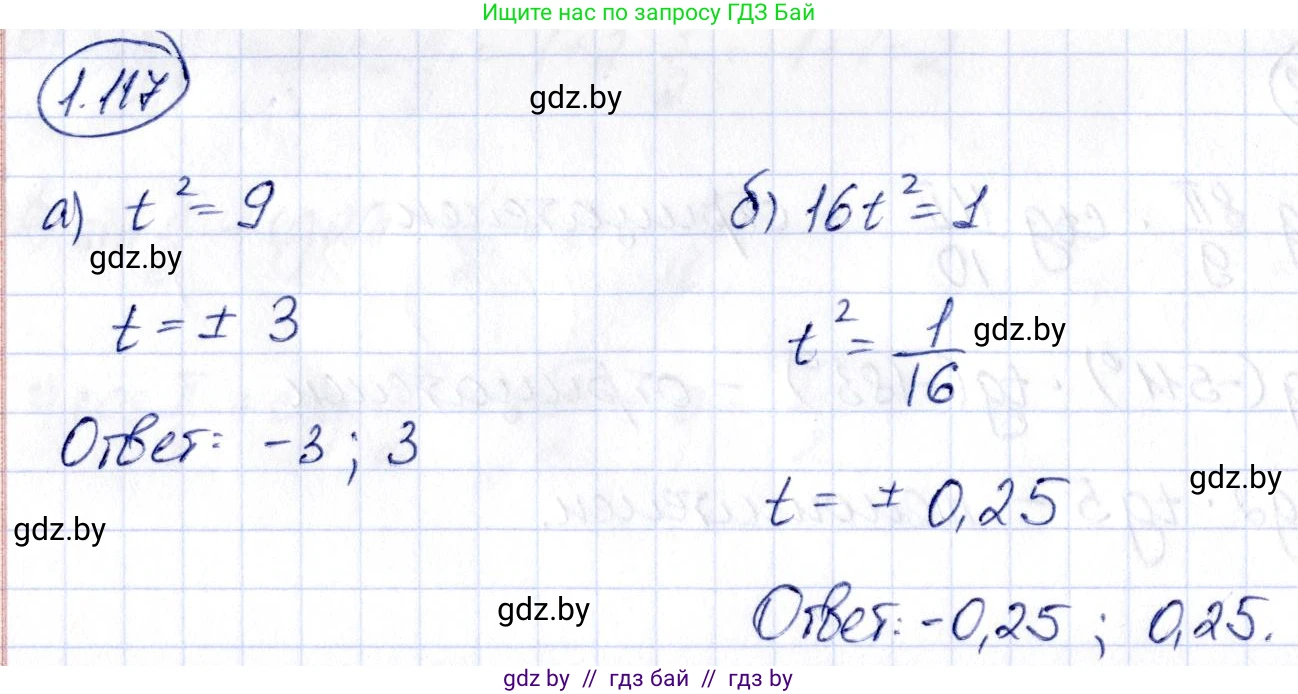 Ищите нас по запросу ГДЗ Бай
1.117
gdz.by
а) t² = 9
б) 16t² = 1
gdz.by
t = ± 3
t² = 1/16
gdz.by
Ответ: -3; 3
t = ± 0,25
gdz.by
gdz.by
Ответ: -0,25; 0,25.
gdz.by
gdz.by // гдз бай // гдз by